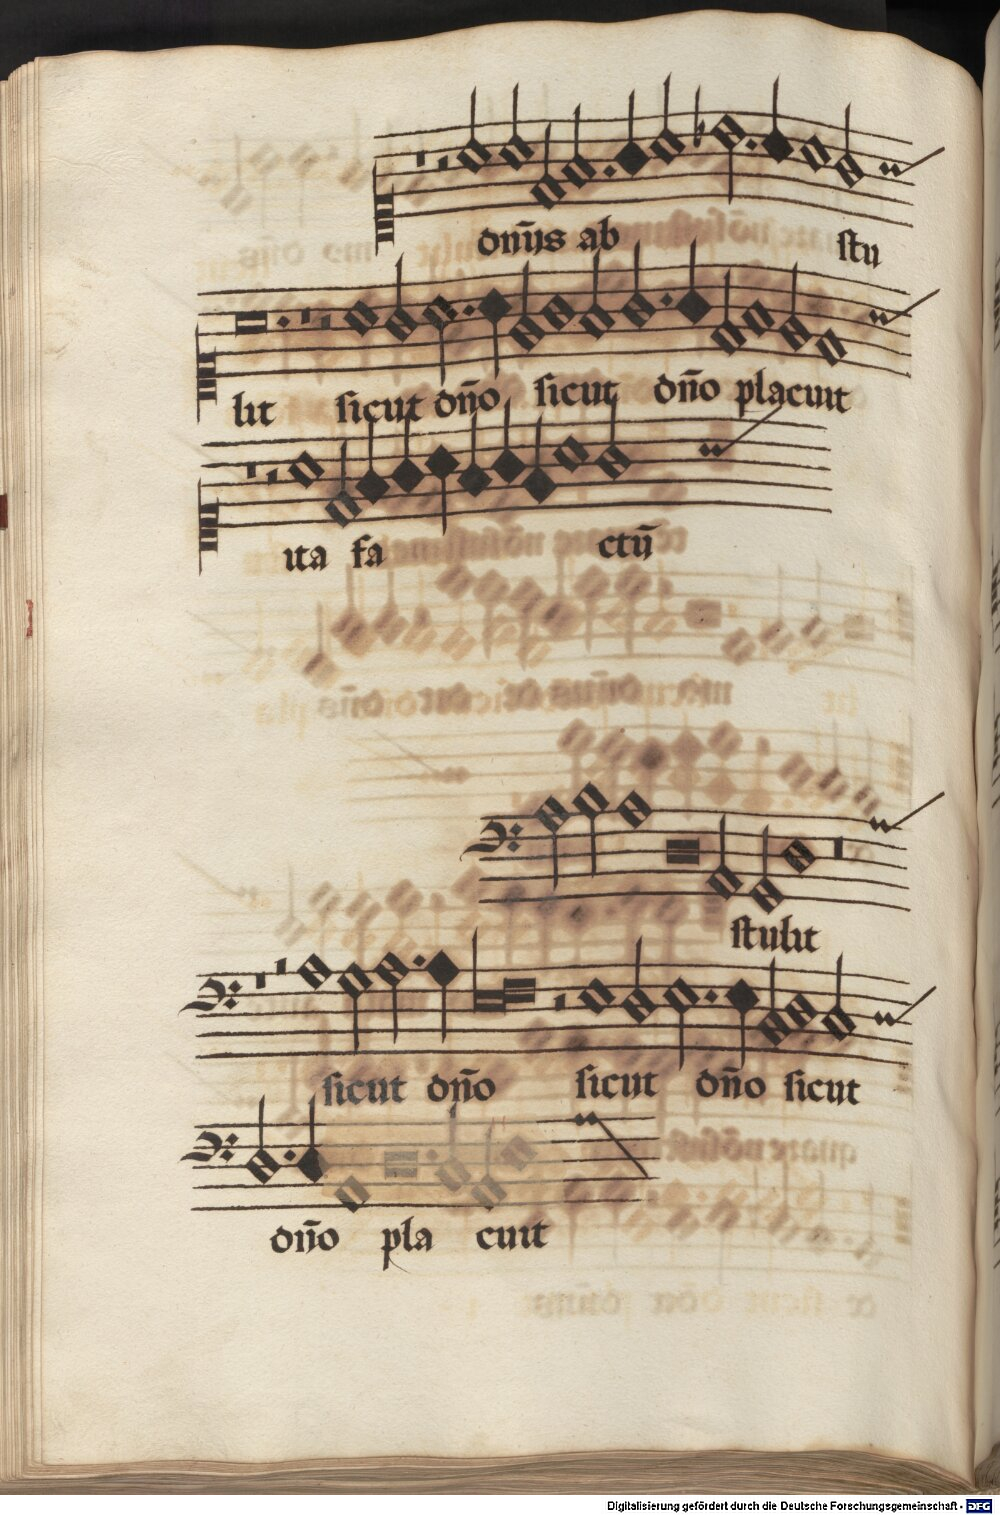 dn̄ùs ab stu
lit sicut dn̄o sicut dn̄o placuit
ita fa ctū
stulit
sicut dn̄o sicut dn̄o sicut
dn̄o pla cuit
Digitalisierung gefördert durch die Deutsche Forschungsgemeinschaft - DFG